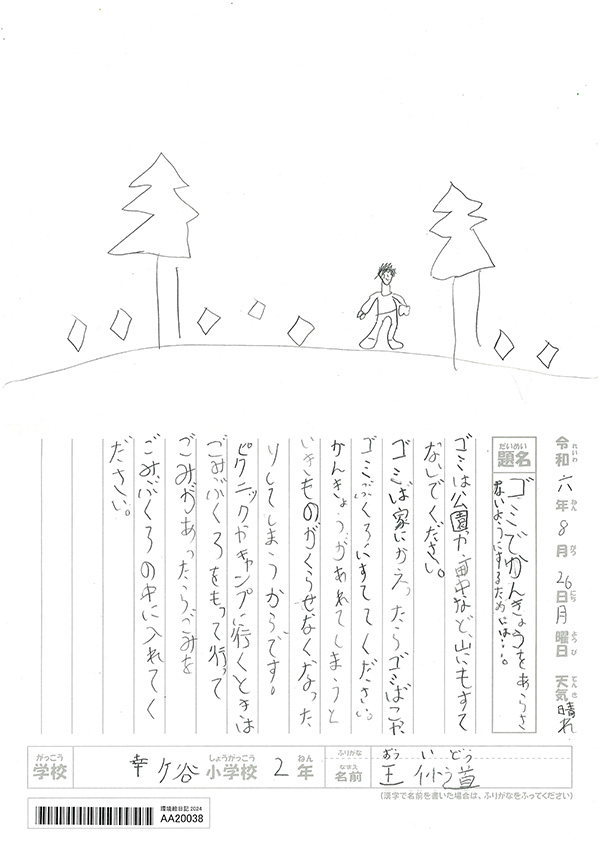 令和六年8月26日月曜日 天気晴れ
れいわ ねん がつ にち ようび てんき
だいめい
題名 ゴミでかんきょうをあらさ
ないようにするためには…。
ゴミは公園や、町中など、山にもすて
ないでください。
ゴミは家にかえったらゴミばこか
ゴミぶくろにすててください。
かんきょうがあれてしまうと
いきものがくらせなくなった
りしてしまうからです。
ピクニックやキャンプに行くときは
ごみぶくろをもって行って
ごみがあったらごみを
ごみぶくろの中に入れてく
ださい。
がっこう しょうがっこう ねん ふりがな おう い どう
学校 幸ケ谷小学校 2年 なまえ 名前 王 道
(漢字で名前を書いた場合は、ふりがなをふってください)
環境絵日記2024
AA20038